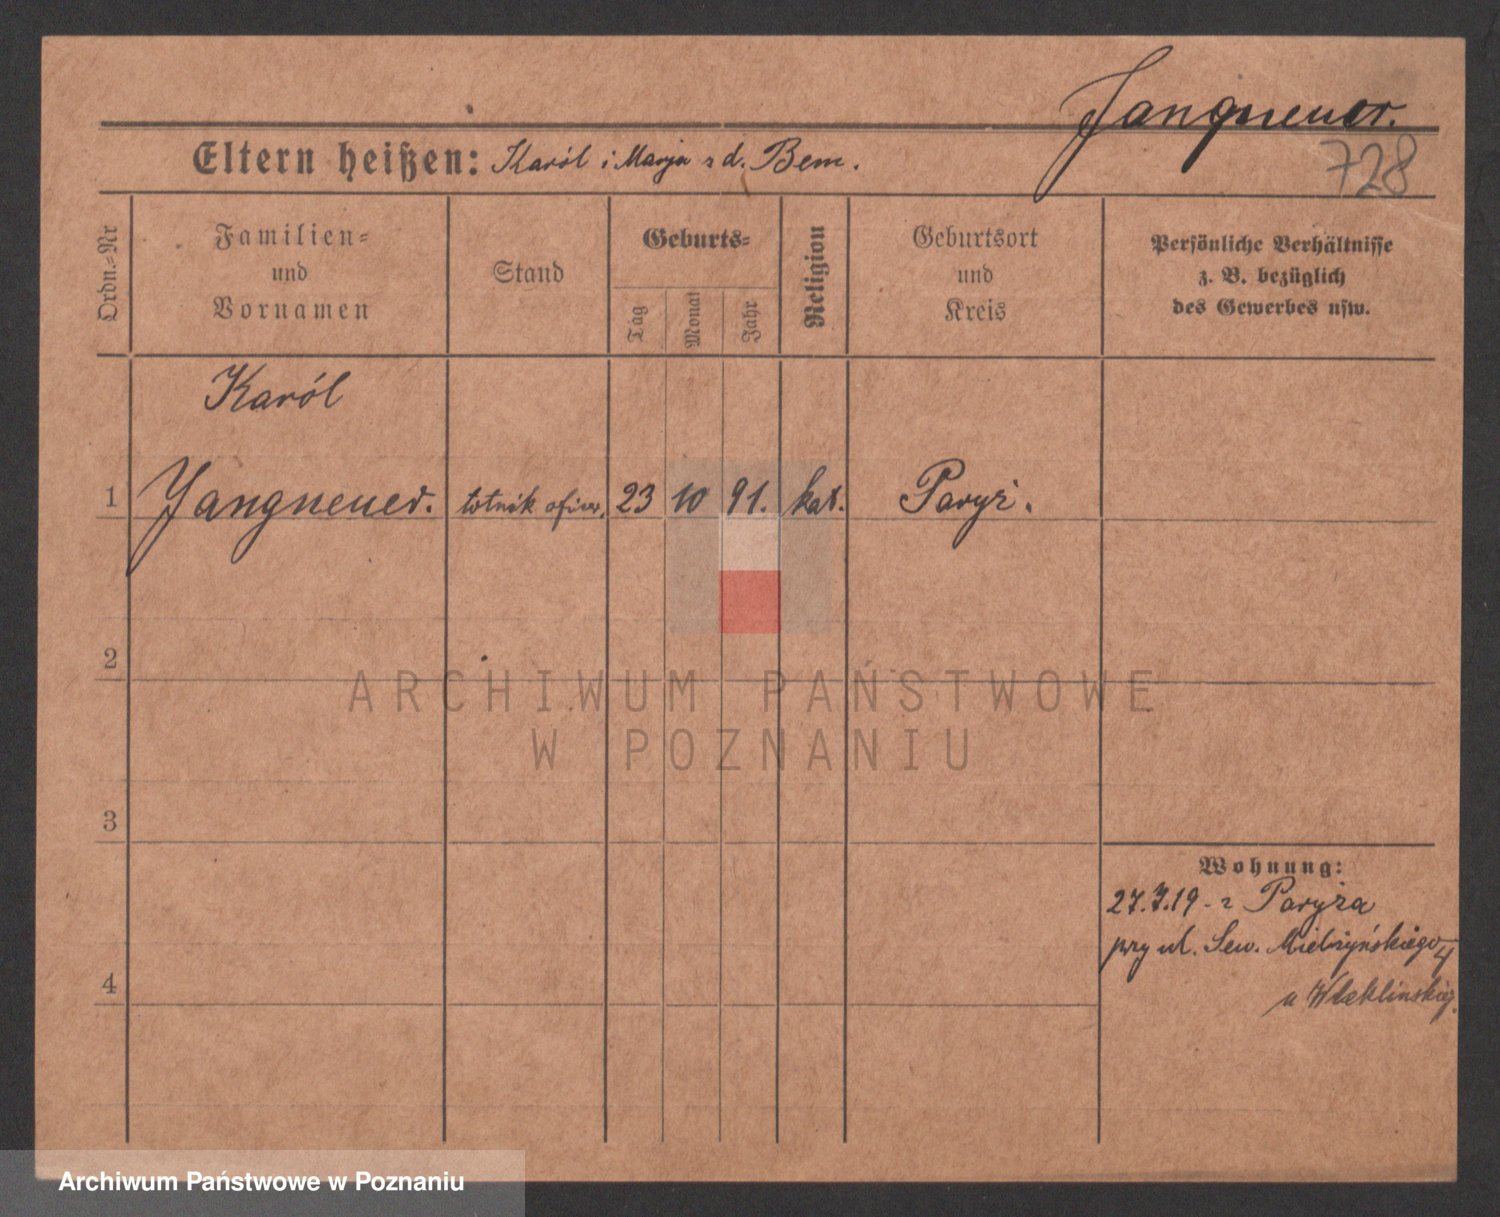 Jangneuer.
728
Eltern heißen: Karól i Marja z d. Bem.
Ordn.-Nr
Familien-
und
Vornamen
Stand
Geburts-
Tag
Monat
Jahr
Religion
Geburtsort
und
Kreis
Persönliche Verhältnisse
z. B. bezüglich
des Gewerbes usw.
Karól
1 Jangneuer. lotnik oficer. 23 10 91. kat. Paryż.
2
ARCHIWUM PAŃSTWOWE
W POZNANIU
3
Wohnung:
27.7.19 - z Paryża
przy ul. Sew. Mielżyńskiego
4
u
4
Archiwum Państwowe w Poznaniu